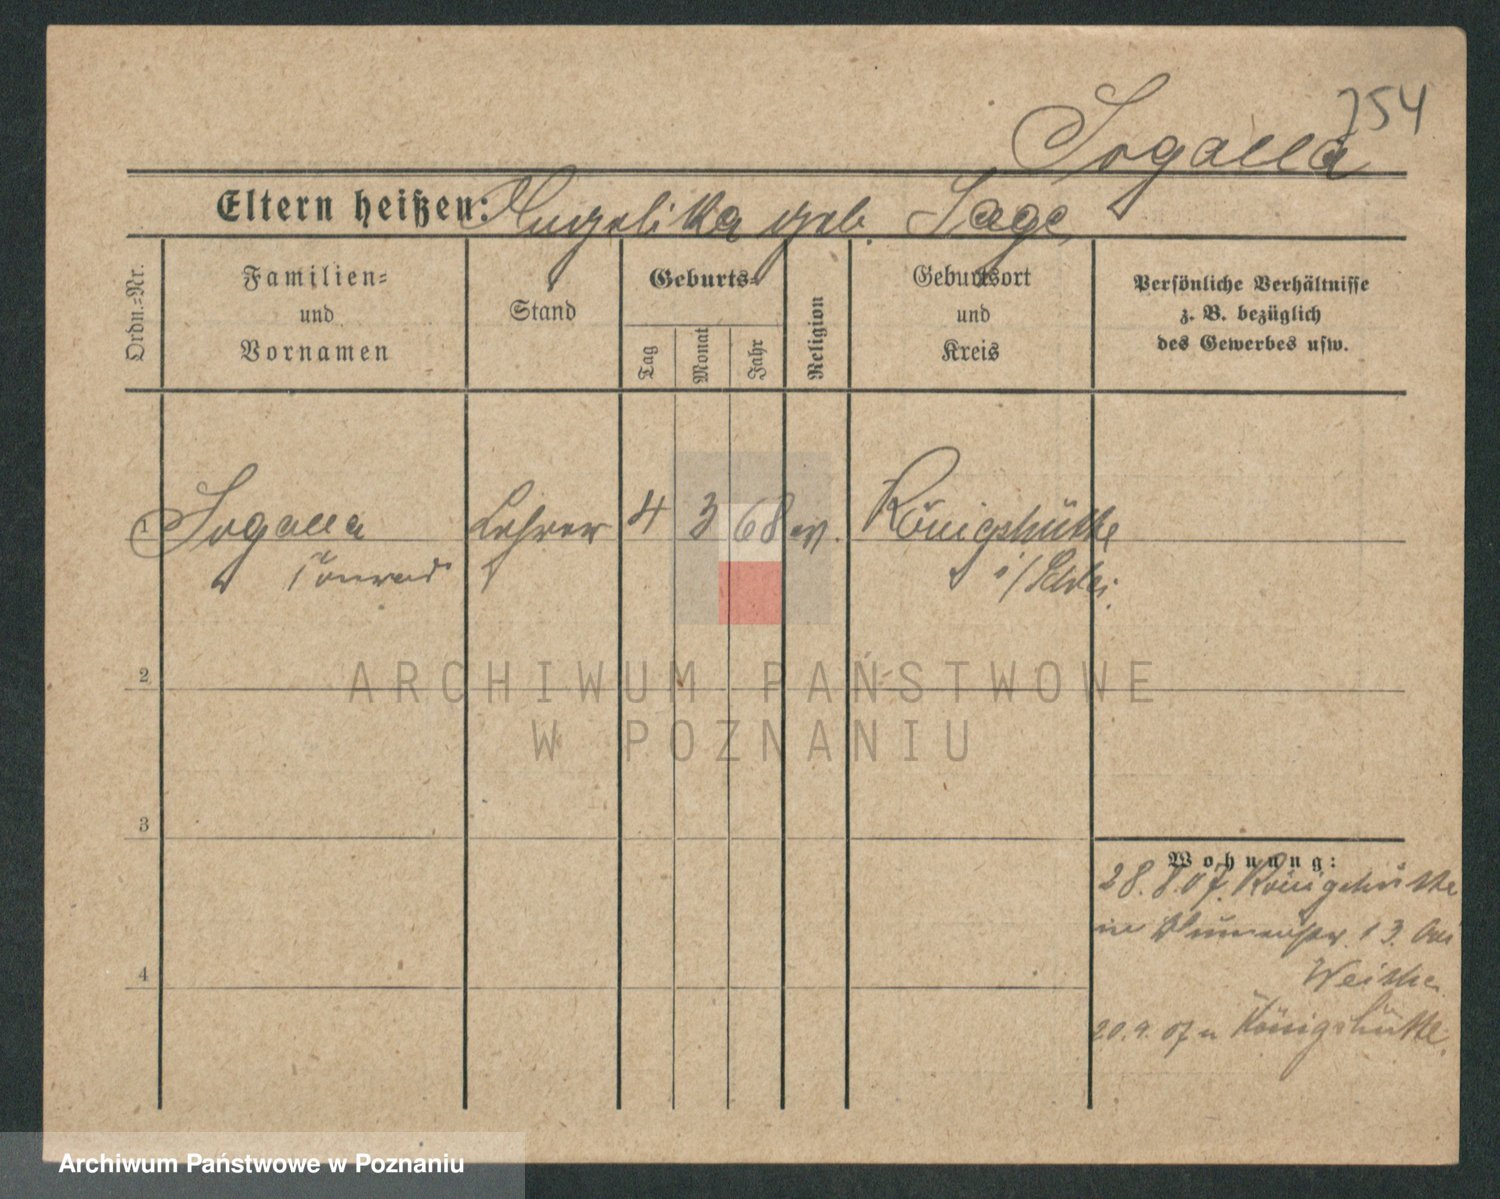 754
Sogalla
Eltern heißen: Angelika geb. Sage
Ordn.-Nr.
Familien-
und
Vornamen
Stand
Geburts-
Tag
Monat
Jahr
Religion
Geburtsort
und
Kreis
Persönliche Verhältnisse
z. B. bezüglich
des Gewerbes usw.
1 Sogalla Lehrer 4 3 68 ev. Königshütte
Conrad i/Schles.
2
ARCHIWUM PAŃSTWOWE
W POZNANIU
3
Wohnung:
28. 8. 07. Königshütte
in 13. bei
4
20. 9. 07 n Königshütte.
Archiwum Państwowe w Poznaniu